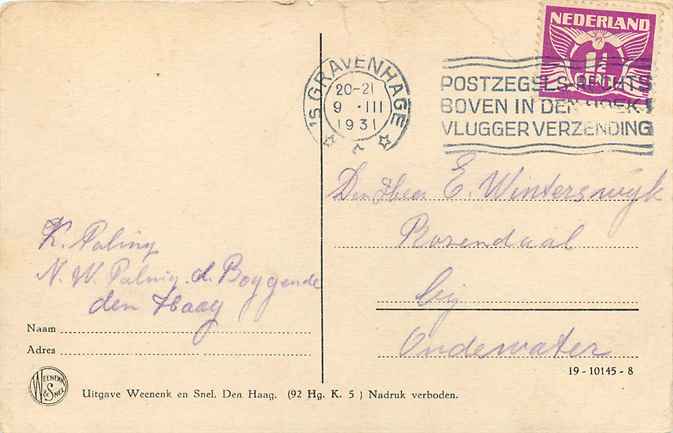 NEDERLAND
1½
CENT
's GRAVENHAGE
20-21
9 .III
1931
POSTZEGELS RECHTS
BOVEN IN DEN HOEK!
VLUGGER VERZENDING
Den Heer E. Winterswijk
Rosendaal
bij
Oudewater
K. Paling
N. W. Paling. d. Boggende
den Haag
Naam
Adres
WEENENK & SNEL
Uitgave Weenenk en Snel. Den Haag. (92 Hg. K. 5 ) Nadruk verboden.
19 - 10145 - 8